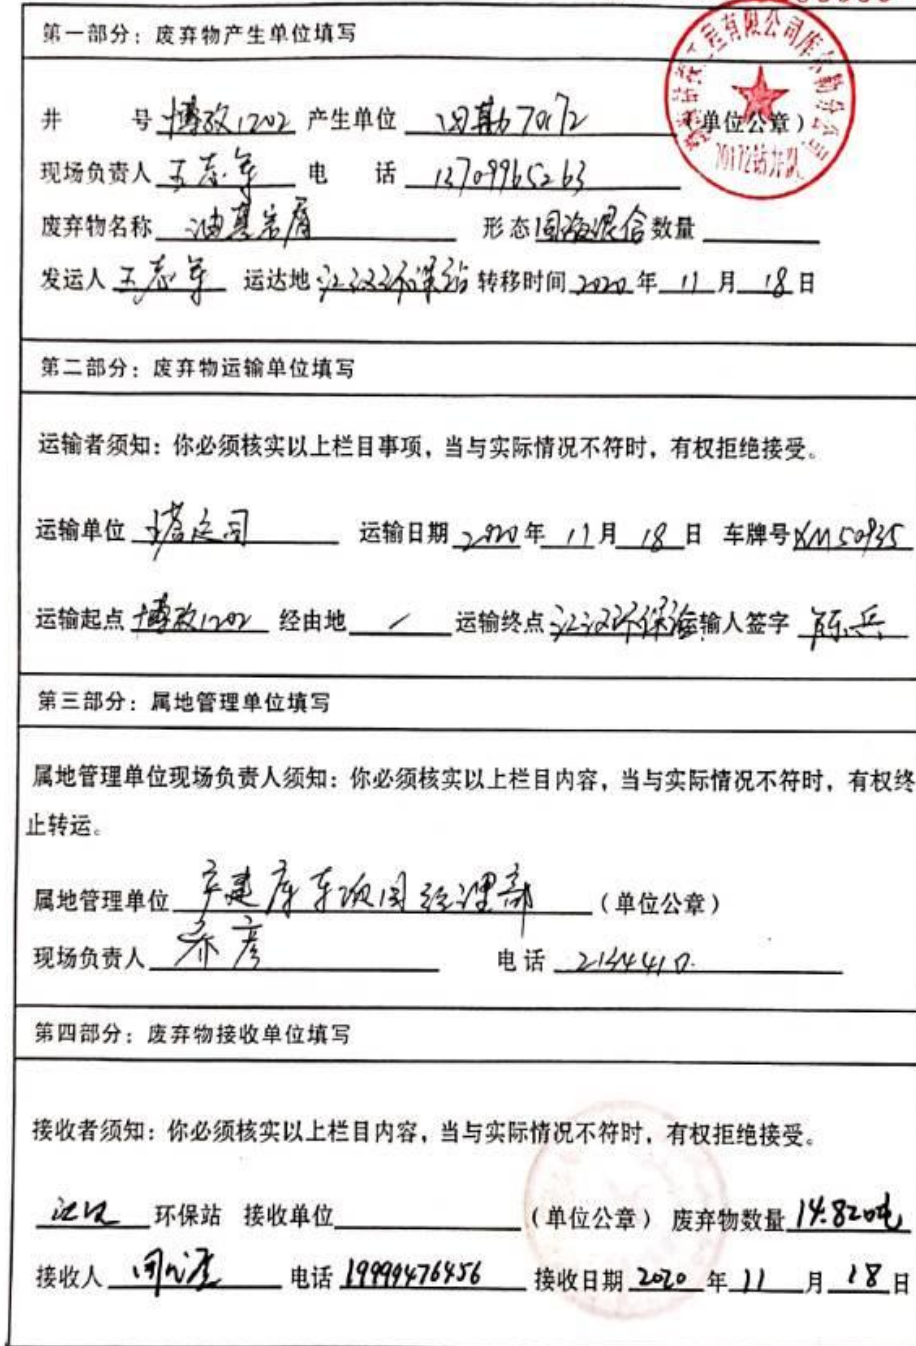 第一部分：废弃物产生单位填写
井 号 博孜1202 产生单位 70172 （单位公章）
70172钻井队
现场负责人 王志军 电 话 13709965263
废弃物名称 油基岩屑 形态 固液混合 数量
发运人 王志军 运达地 江汉环保站 转移时间 2020 年 11 月 18 日
第二部分：废弃物运输单位填写
运输者须知：你必须核实以上栏目事项，当与实际情况不符时，有权拒绝接受。
运输单位 塔运司 运输日期 2020 年 11 月 18 日 车牌号
运输起点 博孜1202 经由地 / 运输终点 江汉环保站 运输人签字 陈兵
第三部分：属地管理单位填写
属地管理单位现场负责人须知：你必须核实以上栏目内容，当与实际情况不符时，有权终
止转运。
属地管理单位 产建库车项目经理部 （单位公章）
现场负责人 乔彦 电话
第四部分：废弃物接收单位填写
接收者须知：你必须核实以上栏目内容，当与实际情况不符时，有权拒绝接受。
江汉 环保站 接收单位 （单位公章） 废弃物数量 14.820吨
接收人 电话 19999476456 接收日期 2020 年 11 月 18 日